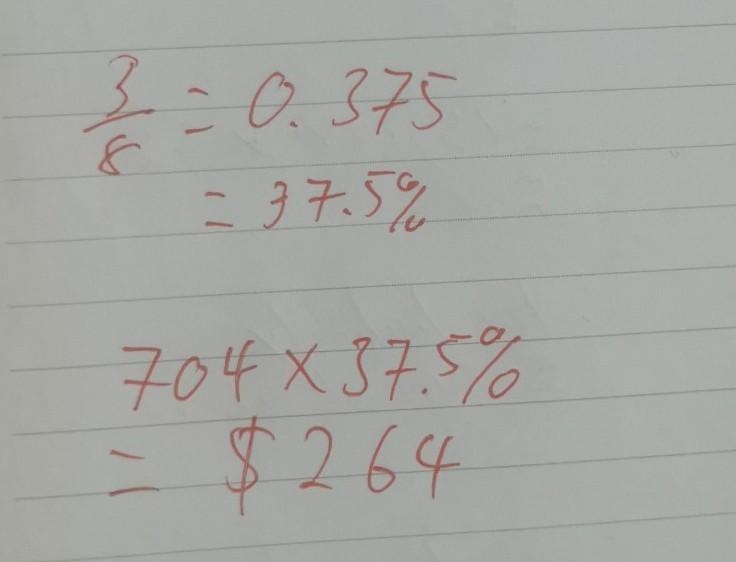 3/8 = 0.375
= 37.5%
704 × 37.5%
= $264